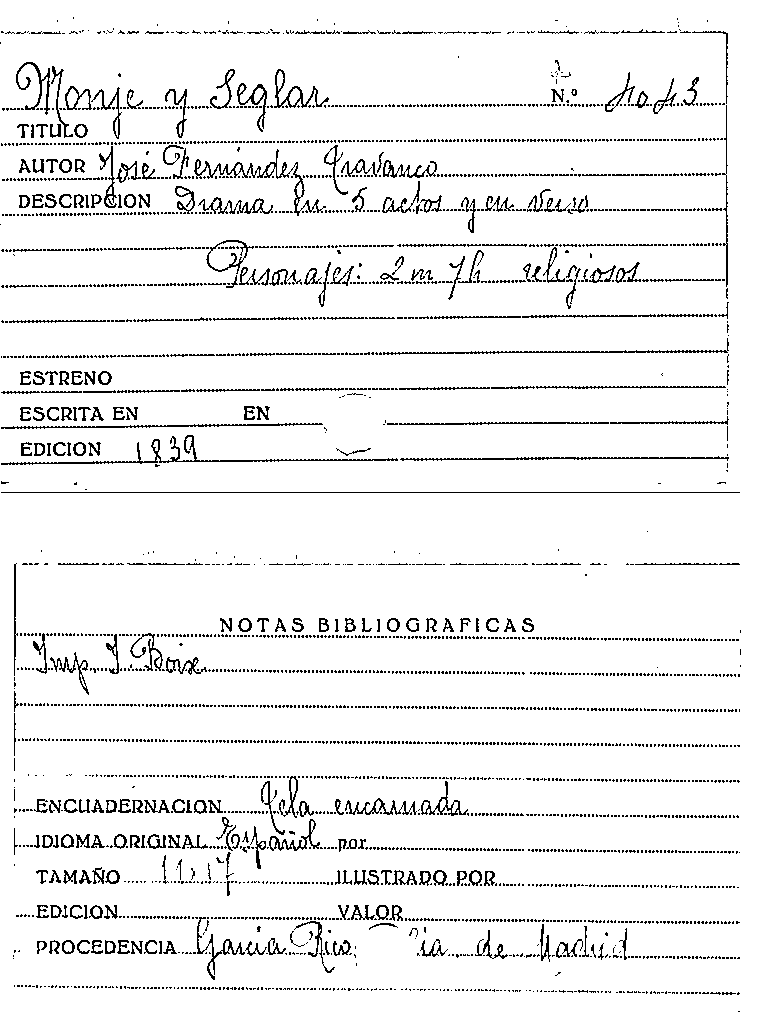 Monje y Seglar N.º 4043
TITULO
AUTOR José Fernández Travanco
DESCRIPCION Drama en 5 actos y en verso
Personajes: 2 m 7 h religiosos
ESTRENO
ESCRITA EN EN
EDICION 1839
NOTAS BIBLIOGRAFICAS
Imp. I. Boix
ENCUADERNACION Tela encarnada
IDIOMA ORIGINAL Español por
TAMAÑO 11x17 ILUSTRADO POR
EDICION VALOR
PROCEDENCIA García Rico de Madrid